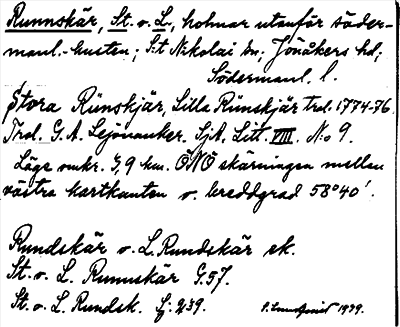 Runnskär, St. o. L., holmar utanför söder-
manl.-kusten; S:t Nikolai sn; Jönåkers hd;
Södermanl. l.
Stora Rünskjär, Lilla Rünskjär Trol. 1774-76.
Trol. G. A. Lejonanker. Sjk. Litt. VIII. No 9.
Läge omkr. 9,9 km. ÖNÖ skärningen mellan
västra kartkanten o. breddgrad 58°40'.
Rundskär o. L. Rundskär ek.
St. o. L. Runnskär G. 57.
St. o. L. Rundsk. Fj: 239.
1939.